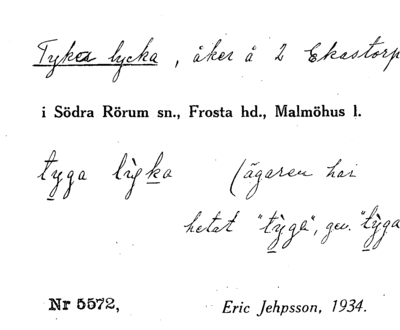 Tyka lycka, åker å 2 Ekastorp
i Södra Rörum sn., Frosta hd., Malmöhus l.
tyga lỳka (ägaren har
hetat "tỳga", gen. "tỳga
Nr 5572, Eric Jehpsson, 1934.